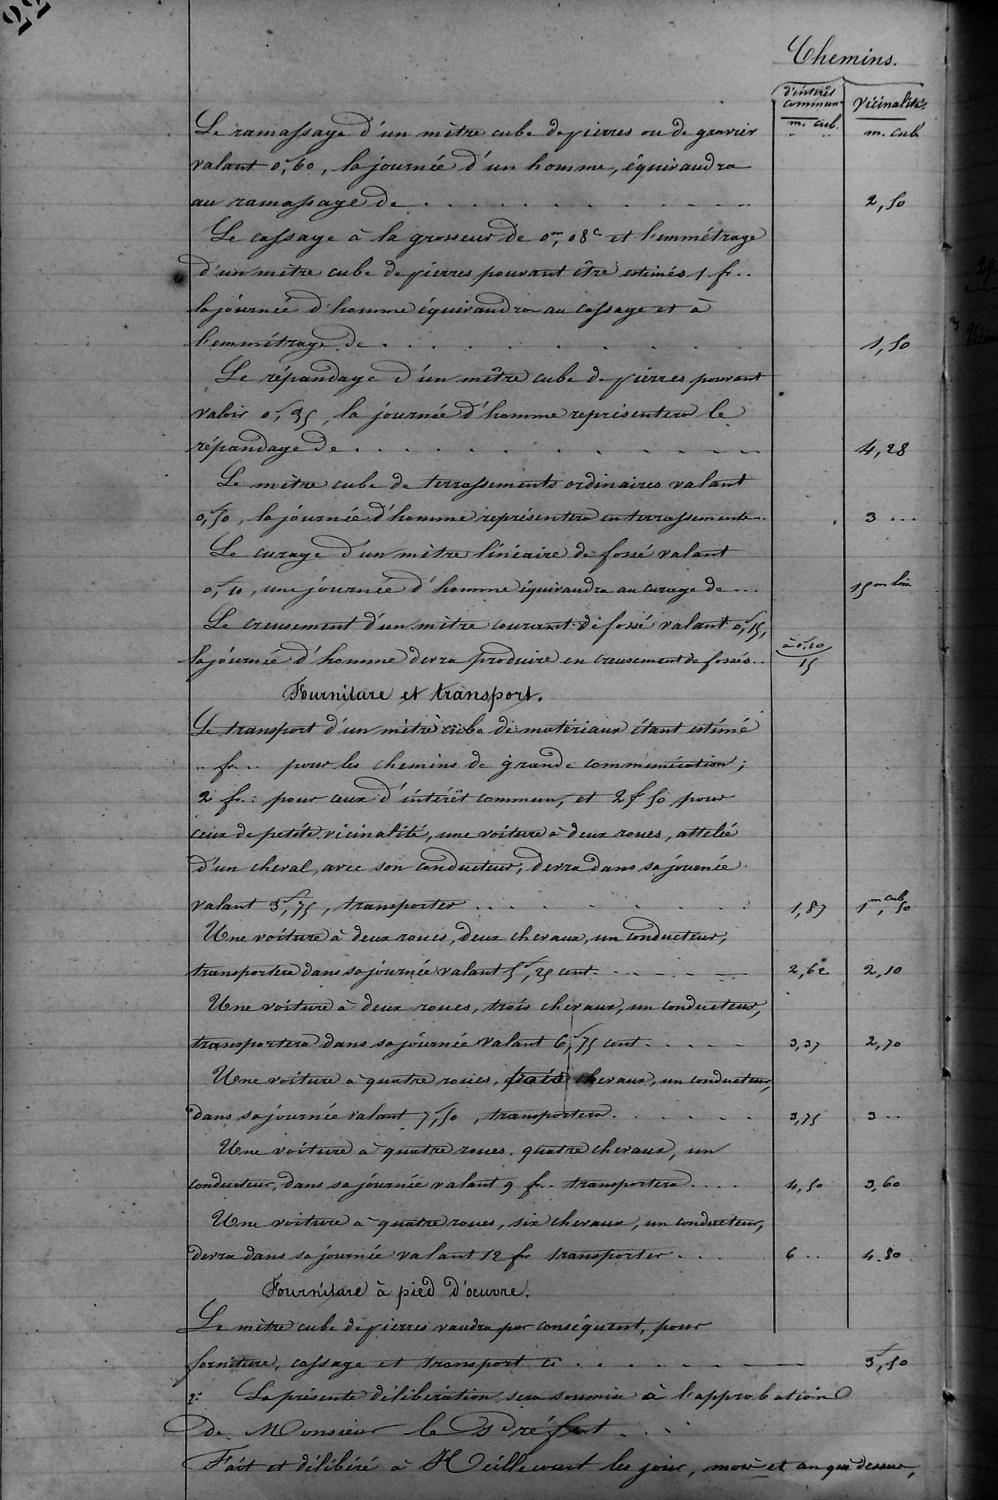 22
Chemins.
d'intérêt commun
Vicinalité
m. cub.
m. cub
Le ramassage d'un mètre cube de pierres ou de gravier
valant 0f,60, la journée d'un homme, équivaudra
au ramassage de . . . . . . . . . . 2,50
Le cassage à la grosseur de 0m,08c et l'emmétrage
d'un mètre cube de pierres pouvant être estimés 1 fr..
la journée d'homme équivaudra au cassage et à
l'emmétrage de . . . . . . . . . . 1,50
Le répandage d'un mètre cube de pierres pouvant
valoir 0f,35, la journée d'homme représentera le
répandage de . . . . . . . . . . 4,28
Le mètre cube de terrassements ordinaires valant
0f,50, la journée d'homme représentera en terrassements.. 3 ...
Le curage d'un mètre linéaire de fossé valant
0f,10, une journée d'homme équivaudra au curage de ... 15 m lin
Le creusement d'un mètre courant de fossé valant 0f,15,
la journée d'homme devra produire en creusement de fossés.. à 0f,10 15
Fourniture et transport.
Le transport d'un mètre cube de matériaux étant estimé
.. fr .. pour les chemins de grande communication ;
2 fr.. pour ceux d'intérêt commun, et 2f 50 pour
ceux de petite vicinalité, une voiture à deux roues, attelée
d'un cheval, avec son conducteur, devra dans sa journée
valant 3f,75, transporter . . . . . . . 1,87 1 m cub, 50
Une voiture à deux roues, deux chevaux, un conducteur,
transportera dans sa journée valant 5f,25 cent. . . . . 2,62 2,10
Une voiture à deux roues, trois chevaux, un conducteur,
transportera dans sa journée valant 6f,75 cent . . . . . 3,37 2,70
Une voiture à quatre roues, trois chevaux, un conducteur,
dans sa journée valant 7f,50, transportera . . . . . 3,75 3 ..
Une voiture à quatre roues, quatre chevaux, un
conducteur, dans sa journée valant 9 fr.. transportera . . . . 4,50 3,60
Une voiture à quatre roues, six chevaux, un conducteur,
devra dans sa journée valant 12 fr transporter . . . 6 .. 4.80
Fourniture à pied d'œuvre.
Le mètre cube de pierres vaudra par conséquent, pour
forniture, cassage et transport ci . . . . . . . . 3f,50
La présente délibération sera soumise à l'approbation
de Monsieur le Préfet . . .
Fait et délibéré à Heillecourt les jour, mois et an que dessus,